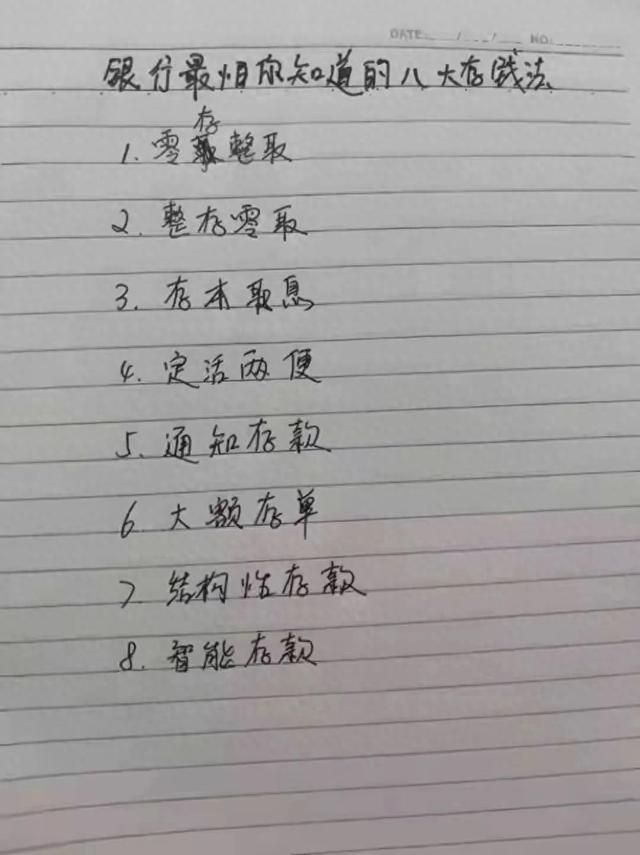 DATE: / / NO:
银行最怕你知道的八大存钱法
1. 零存整取
2. 整存零取
3. 存本取息
4. 定活两便
5. 通知存款
6 大额存单
7 结构性存款
8. 智能存款